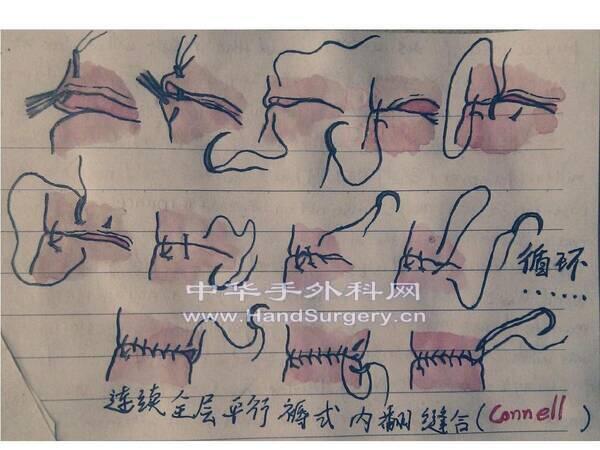 循环
……
中华手外科网
www.HandSurgery.cn
连续全层平行褥式内翻缝合(Connell)